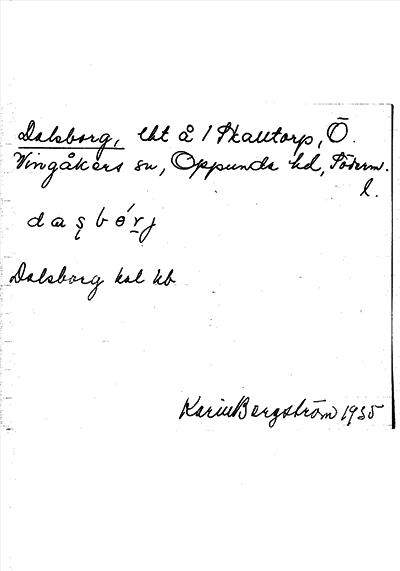 Dalsborg, lht å 1 Skalltorp, Ö.
Vingåkers sn, Oppunda hd, Söderm.
l.
d a ʂ b ó r j
Dalsborg kal kb
Karin Bergström 1935